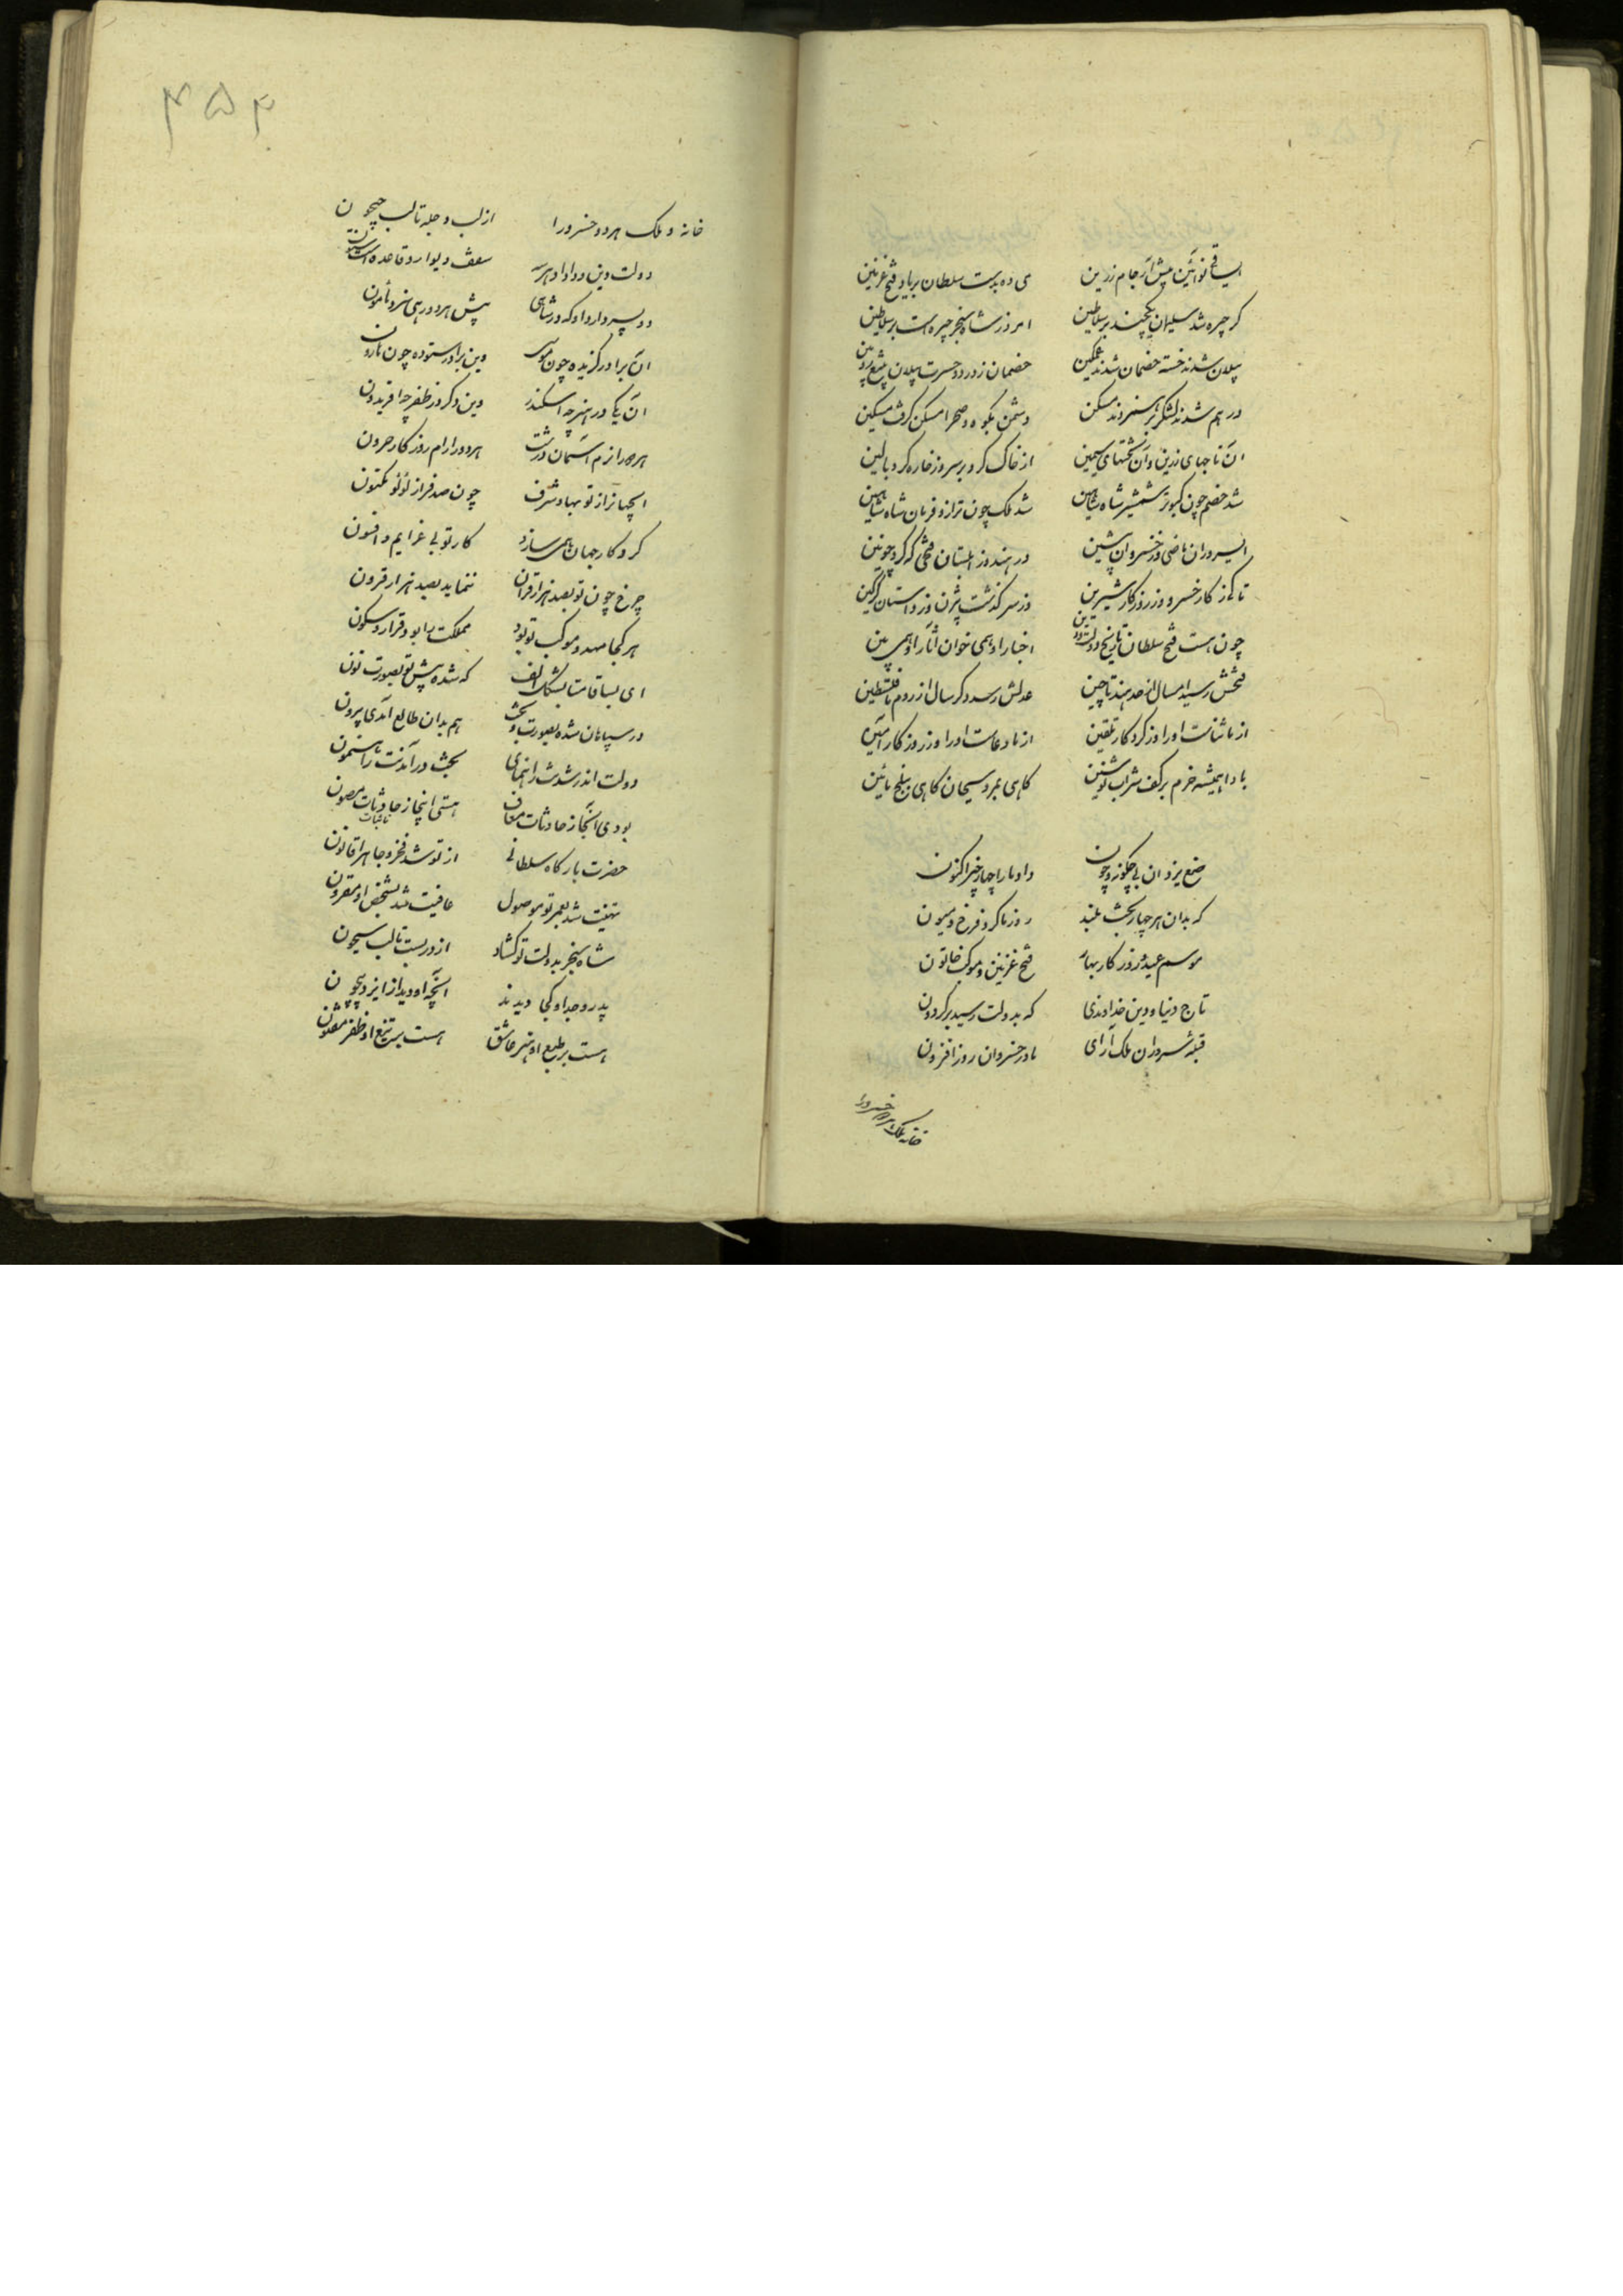 ای ساقی نوآئین پیش آر جام زرین می ده بدست سلطان بر یاد فتح غزنین
کر چیره شد سلیمان یکچند بر سلاطین امروز شاه سنجر چیره است بر سلاطین
پیلان شدند خسته خصمان شدند غمکین خصمان ز درد و حسرت پیلان
در هم شدند لشکر مسکن دشمن بکوه و صحرا مسکن کرفت مسکین
ان تاجهای زرین و آن تختهای سیمین از خاک کرد بستر وز خاره کرد بالین
شد خصم چون کبوتر شمشیر شاه شاهین شد ملک چون ترازو فرمان شاه شاهین
ای سروران ماضی وز خسروان پیشین در هند و زابلستان فتحی که کرد چونین
تا کی ز کار خسرو وز روزکار شیرین وز سرکذشت بیژن وز داستان کرکین
چون هست فتح سلطان تاریخ دولت و دین اخبار او همی خوان آثار او همی بین
فتحش رسید امسال از حد هند تا چین عدلش رسد دکر سال از روم تا فلسطین
از ما ثناست او را وز کردکار تلقین از ما دعاست او را وز روزکار آمین
بادا همیشه خرم بر کف شراب نوشین کاهی بمرو سیحان کاهی ببلخ بامین
صنع یزدان بی چکونه و چون داد ما را چهار چیز اکنون
که بدان هر چهار بخت بلند روز ما کرد فرخ و میمون
موسم عید و روزکار بهار فتح غزنین و موکب خاتون
تاج دنیا و دین خداوندی که بدولت رسید بر کردون
قبله سروران ملک آرای مادر خسروان روزافزون
خانه ملک هر دو خسرو را
۴۵۴
خانه و ملک هر دو خسرو را از لب دجله تا لب جیحون
دولت و دین و داد او هر سه سقف و دیوار و قاعده است و ستون
دو پسر دارد او که در شاهی پیش هر دو رهی سزد مأمون
آن برادر کزیده چون موسی وین برادر ستوده چون هارون
آن یکی در هنر چو اسکندر وین دکر در ظفر چو افریدون
هر دو را نرم آسمان درشت هر دو را رام روزکار حرون
ای جهان را ز تو بها و شرف چون صدف را ز لؤلؤ مکنون
کردکار جهان همی سازد کار تو بی عزایم و افسون
چرخ چون تو بصد هزار قران ننماید بصد هزار قرون
هر کجا مهد و موکب تو بود مملکت را بود قرار و سکون
ای بسا قامتا بشکل الف که شده پیش تو بصورت نون
در سپاهان شده بصورت بخت هم بدان طالع آمدی بیرون
دولت اندر شدنت راهنمای بخت در آمدنت راهنمون
بودی آنجا ز حادثات معاف هستی اینجا ز حادثات مصون
نائبات
حضرت بارکاه سلطانی از تو شد فخر و جاه را قانون
تهنیت شد بعمر تو موصول عافیت شد بشخص او مقرون
شاه سنجر بدولت تو کشاد از در بست تا لب سیحون
پدر و جد او کجا دیدند آنچه او دید از ایزد بیچون
هست بر طبع او هنر عاشق هست بر تیغ او ظفر مفتون